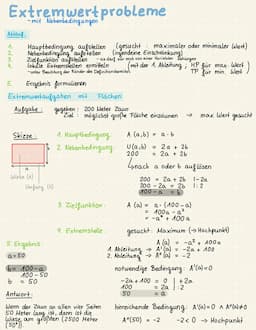 Extremwertprobleme
- mit Nebenbedingungen
Ablauf:
1. Hauptbedingung aufstellen (gesucht: maximaler oder minimaler Wert)
2. Nebenbedingung aufstellen (irgendeine Einschränkung)
3. Zielfunktion aufstellen
4. lokale Extremstellen ermitteln (mit der 1. Ableitung; HP für max. Wert
- unter Beachtung der Ränder der Definitionsbereichs TP für min. Wert)
5. Ergebnis formulieren
Extremwertaufgaben mit Flächen
Aufgabe: gegeben: 200 Meter Zaun
Ziel: möglichst große Fläche einzäunen → max Wert gesucht
Skizze:
Weite (a)
Umfang (U)
1. Hauptbedingung: A (a,b) = a · b
2. Nebenbedingung: U(a,b) = 2a + 2b
200 = 2a + 2b
↳ nach a oder b auflösen
200 = 2a + 2b |-2a
200 - 2a = 2b |:2
100 - a = b
3. Zielfunktion: A(a) = a · (100-a)
= 100a - a²
= -a² + 100a
4. Extremstelle: gesucht: Maximum (→ Hochpunkt)
A (a) = -a² + 100a
1. Ableitung → A'(a) = -2a + 100
2. Ableitung → A''(a) = -2
notwendige Bedingung: A'(a)=0
-2a + 100 = 0 |+2a
100 = 2a |:2
50 = a
hinreichende Bedingung: A'(a)=0 ∧ A''(a)≠0
A''(50) = -2 -2<0 → Hochpunkt
5. Ergebnis
a = 50
b = 100-a
= 100-50
b = 50
Antwort:
Wenn der Zaun an allen vier Seiten
50 Meter lang ist, dann ist die
Weide am größten (2500 Meter